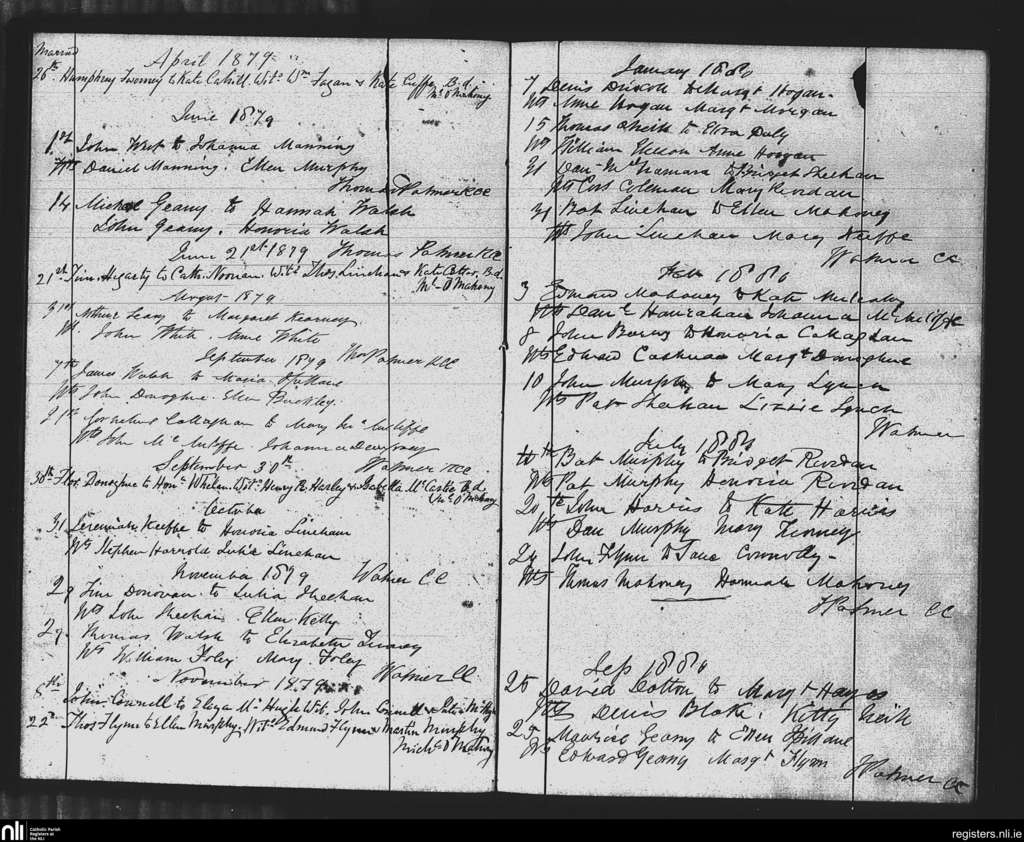 Married
April 1879
26th Humphrey Twomey to Kate Cahill. Wits Wm Fagan & Kate Cuffe, Bd.
Ml O'Mahony
June 1879
1st John West to Johanna Manning
Wts Daniel Manning. Ellen Murphy
Thomas Palmer RCC
14 Michael Geany to Hannah Walsh
John Geany. Honoria Walsh
June 21st 1879 Thomas Palmer RCC
21st Tim. Hegarty to Cath. Noonan. Wits Thos. Linehan & Kate Cotter, Bd.
Ml O'Mahony
August 1879
31st Arthur Leary to Margaret Kearney
Wt John White. Anne White
September 1879 Thos Palmer RCC
7th James Walsh to Maria
Wts John Donoghue. Ellen Buckley.
21st Cornelius Callaghan to Mary Mc Auliffe
Wts John Mc Auliffe. Johanna
September 30th Palmer RCC
30th Thos. Donoghue to Honr. Whelan. Wits Henry R. Harley & Isabella Mc Carthy Bd.
Ml O'Mahony
October
31 Jeremiah Keeffe to Honoria Linehan
Wts Stephen Harnold Julia Linehan
November 1879 Palmer CC
29 Tim Donovan to Julia Sheehan
Wts John Sheehan. Ellen Kelly
29 Thomas Walsh to Elizabeth
Wts William Foley Mary Foley
November 1879 Palmer CC
8th John Connell to Eliza Mc Hugh Wit. John Connell &
22d Thos Flynn to Ellen Murphy. Wits Edmund Flynn & Martin Murphy
Michl O'Mahony
January 1880
7 Denis Driscoll to Margt Hogan.
Wts Anne Hogan Margt Morgan
15 Thomas to Daly
Wts William Anne Hogan
31 Dan Mc Namara to Bridget Sheehan
Wts Coleman Mary Riordan
31 Bat Linehan to Ellen Mahoney
Wts John Linehan Mary Keeffe
Palmer CC
Feb 1880
3 Edmund Mahoney to Kate Mulcahy
Wts Danl Hanrahan Johanna
8 John to Honoria Callaghan
Wts Edward Cashman Margt Donoghue
10 John Murphy to Mary Lynch
Wts Pat Sheehan Lizzie Lynch
Palmer
July 1880
Bat Murphy to Bridget Riordan
Wts Pat Murphy Honoria Riordan
20th John Harris to Kate Harris
Wts Dan Murphy Mary
24 John Flynn to Jane Connolly
Wts Thomas Mahoney Hannah Mahoney
T Palmer CC
Sep 1880
25 David Cotton to Margt Hayes
Wts Denis Blake. Kitty
25 Maurice Geany to Ellen
Wts Edward Geany Margt Flynn
T Palmer CC
nli
Catholic Parish
Registers at
the NLI
registers.nli.ie